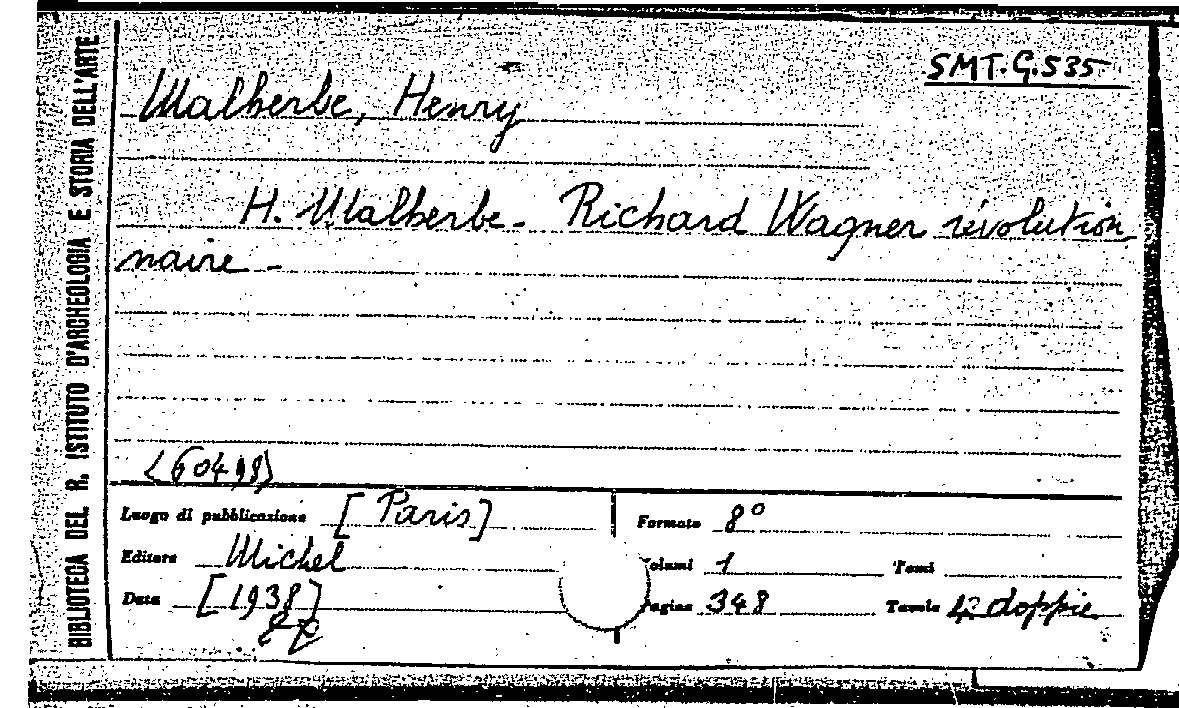 BIBLIOTECA DEL R. ISTITUTO D'ARCHEOLOGIA E STORIA DELL'ARTE
SMT.G.535
Malherbe, Henry
H. Malherbe - Richard Wagner révolution
naire -
(60498)
Luogo di pubblicazione [Paris]
Editore Michel
Data [1938]
Formato 8°
Volumi 1 Tomi
Pagine 348 Tavole 12 doppie